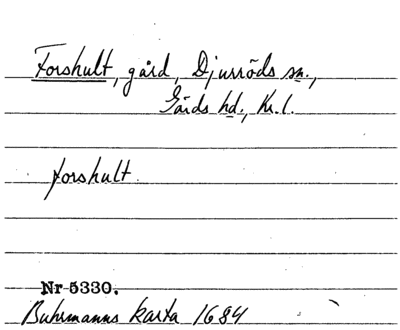 Forshult, gård, Djurröds sn.,
Gärds hd., Kr. l.
forshult
Nr 5330.
Buhrmanns karta 1684